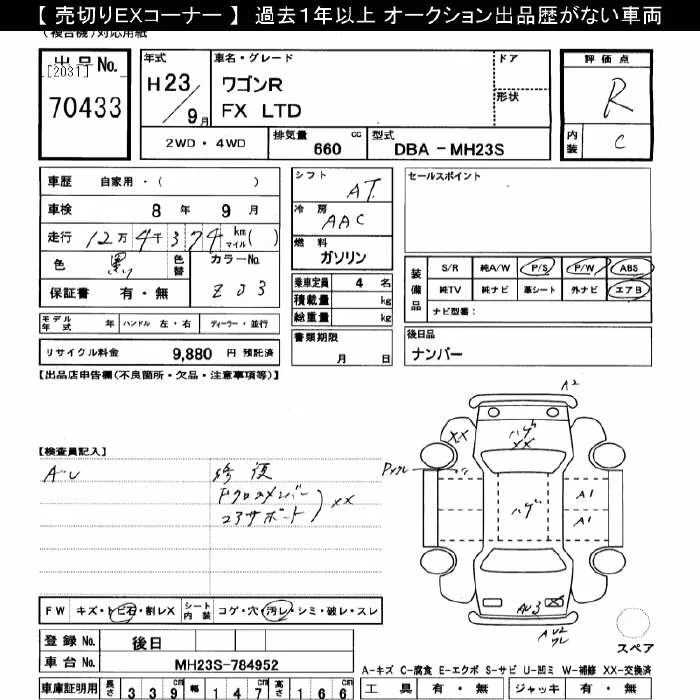 【 売切りEXコーナー 】 過去1年以上 オークション出品歴がない車両
(複合機)対応用紙
出品No.
[2031]
70433
年式
H23/9月
車名・グレード
ワゴンR
FX LTD
ドア
形状
評価点
R
内装
C
2WD・4WD
排気量
660
cc
型式
DBA-MH23S
車歴 自家用・( )
車検 8年 9月
走行 12万4千374 km マイル( )
色 黒
色替
カラーNo.
ZJ3
保証書 有・無
シフト
AT
冷房
AAC
燃料
ガソリン
乗車定員 4 名
積載量 kg
総重量 kg
セールスポイント
装備品
S/R 純A/W P/S P/W ABS
純TV 純ナビ 革シート 外ナビ エアB
ナビ型番:
モデル年式 年 ハンドル 左・右 ディーラー・並行
書類期限
月 日
後日品
ナンバー
リサイクル料金 9,880 円 預託済
【出品店申告欄(不良箇所・欠品・注意事項等)】
A2
XX
ハゲ
XX
【検査員記入】
AU
修復
Fクロスメンバー
コアサポート
XX
ハゲ
A1
A1
FW キズ・トビ石・割レX
シート内装
コゲ・穴・汚レ・シミ・破レ・スレ
AU3
X
AU2
ワレ
スペア
登録No. 後日
車台No. MH23S-784952
A-キズ C-腐食 E-エクボ S-サビ U-凹ミ W-補修 XX-交換済
車庫証明用 長さ 339 cm 幅 147 cm 高さ 166 cm
工具 有・無 ジャッキ 有・無